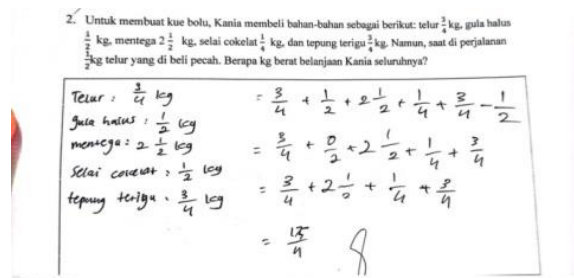 2. Untuk membuat kue bolu, Kania membeli bahan-bahan sebagai berikut: telur 3/4 kg, gula halus
1/2 kg, mentega 2 1/2 kg, selai cokelat 1/4 kg, dan tepung terigu 3/4 kg. Namun, saat di perjalanan
1/2 kg telur yang di beli pecah. Berapa kg berat belanjaan Kania seluruhnya?
Telur : 3/4 kg
gula halus : 1/2 kg
mentega : 2 1/2 kg
Selai coklat : 1/2 kg
tepung terigu : 3/4 kg
= 3/4 + 1/2 + 2 1/2 + 1/4 + 3/4 - 1/2
= 3/4 + 0/2 + 2 1/2 + 1/4 + 3/4
= 3/4 + 2 1/2 + 1/4 + 3/4
= 17/4
8